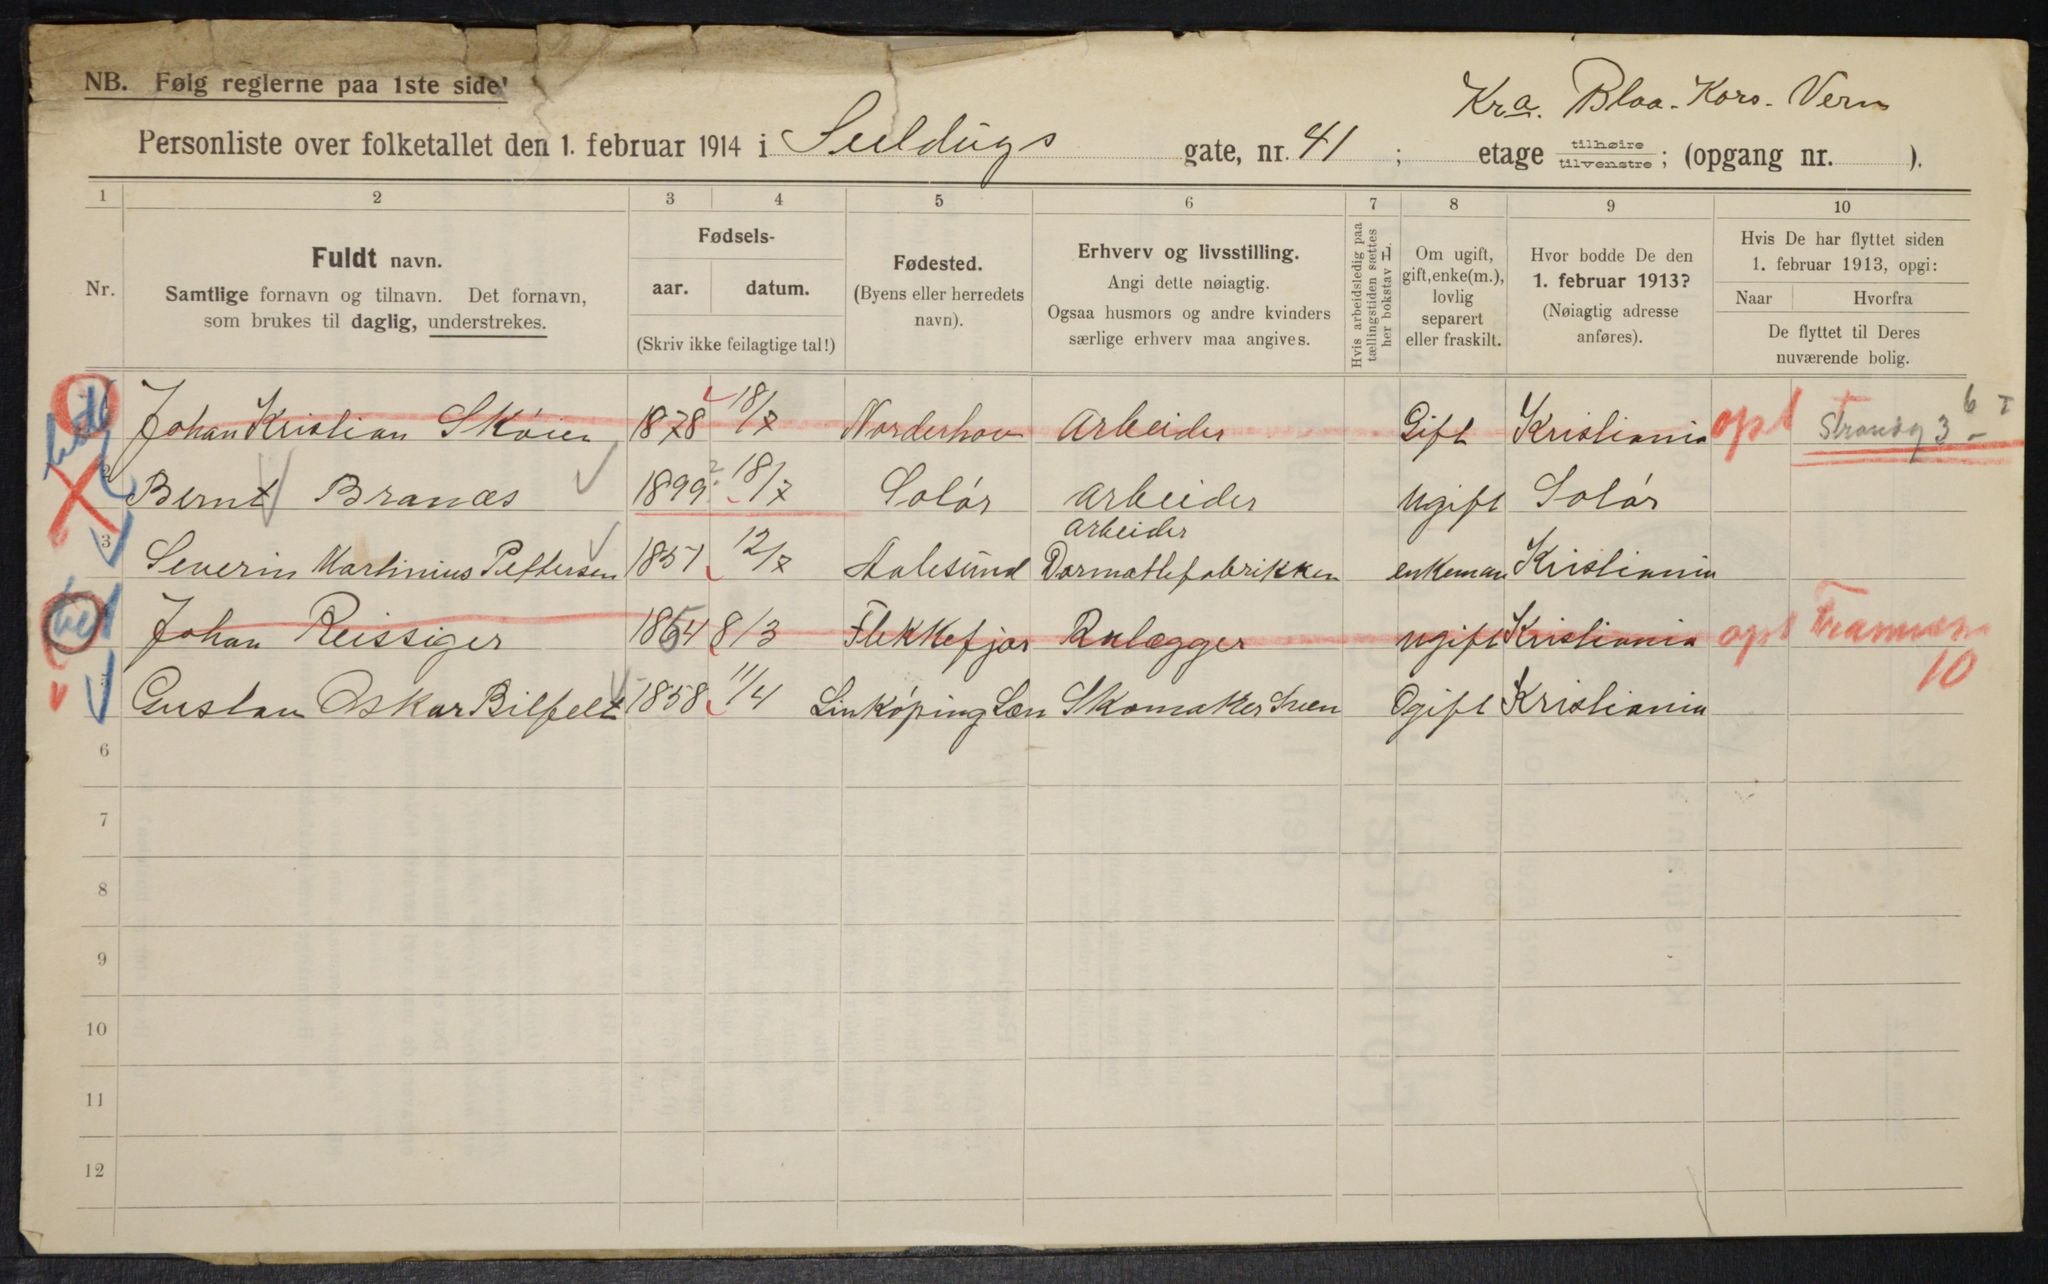 NB. Følg reglerne paa 1ste side!
Kra. Blaa-Kors-Vern
Personliste over folketallet den 1. februar 1914 i Suldugs gate, nr. 41 ; etage tilhøire/tilvenstre; (opgang nr. ).
1 2 3 4 5 6 7 8 9 10
Nr.
Fuldt navn.
Samtlige fornavn og tilnavn. Det fornavn,
som brukes til daglig, understrekes.
Fødsels-
aar. datum.
(Skriv ikke feilagtige tal!)
Fødested.
(Byens eller herredets
navn).
Erhverv og livsstilling.
Angi dette nøiagtig.
Ogsaa husmors og andre kvinders
særlige erhverv maa angives.
Hvis arbeidsledig paa
tællingstiden sættes
her bokstav L
Om ugift,
gift, enke(m.),
lovlig
separert
eller fraskilt.
Hvor bodde De den
1. februar 1913?
(Nøiagtig adresse
anføres).
Hvis De har flyttet siden
1. februar 1913, opgi:
Naar Hvorfra
De flyttet til Deres
nuværende bolig.
Johan Kristian Skøien 1878 18/7 Norderhov Arbeider Gift Kristiania opt Strandg 3
2 Bernt Branæs 1899 ? 18/7 Solør Arbeider Ugift Solør
3 Severin Martinius Pettersen 1851 12/7 Aalesund Arbeider
Dormatlefabrikken enkeman Kristiania
Johan Reissiger 1864 8/3 Flekkefjor Rørlægger Ugift Kristiania opt
10
Gustav Oskar Bilfelt 1858 11/4 Linkøping Læn Skomaker Sven Ogift Kristiania
6
7
8
9
10
11
12